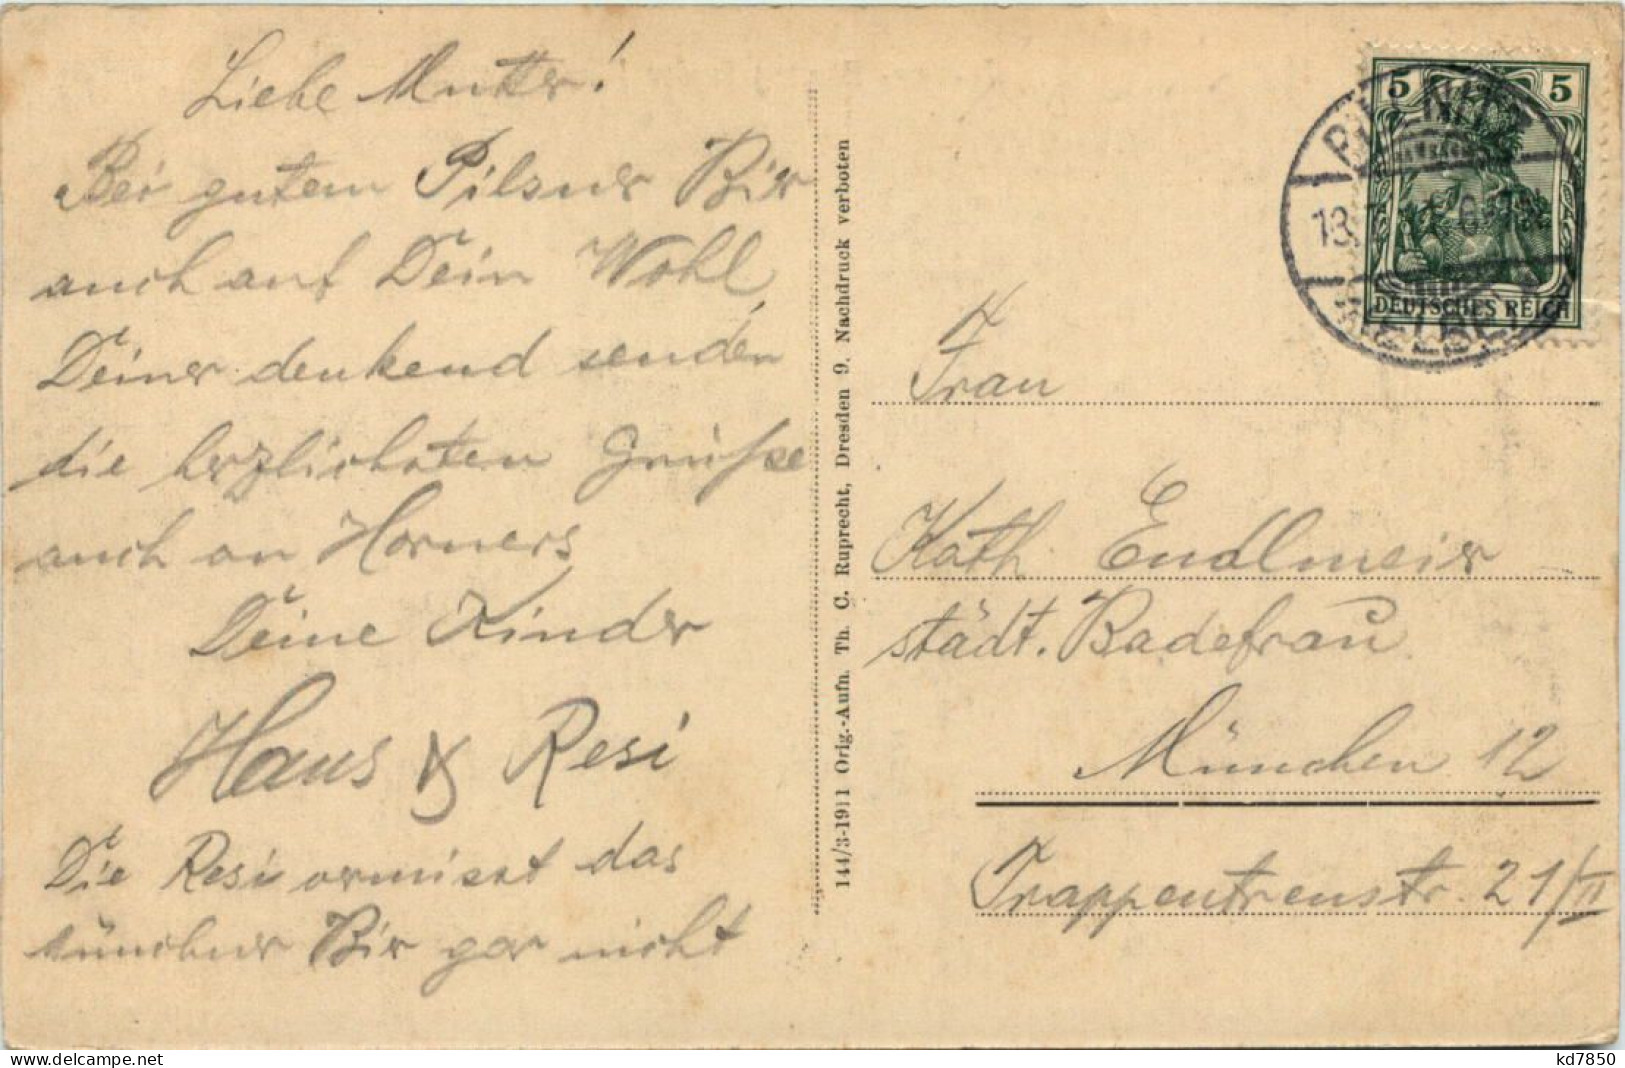 Liebe Mutter!
Bei gutem Pilsner Bier
auch auf Dein Wohl,
Deiner denkend senden
die herzlichsten Grüße
auch an Horners
Deine Kinder
Hans & Resi
Die Resi vermisst das
Münchner Bier gar nicht
144/3-1911 Orig.-Aufn. Th. C. Ruprecht, Dresden 9. Nachdruck verboten
5 5
PILLNITZ
13.
DEUTSCHES REICH
Frau
Kath. Endlmeier
städt. Badefrau
München 12
Trappentreustr. 21/II
www.delcampe.net
kd7850